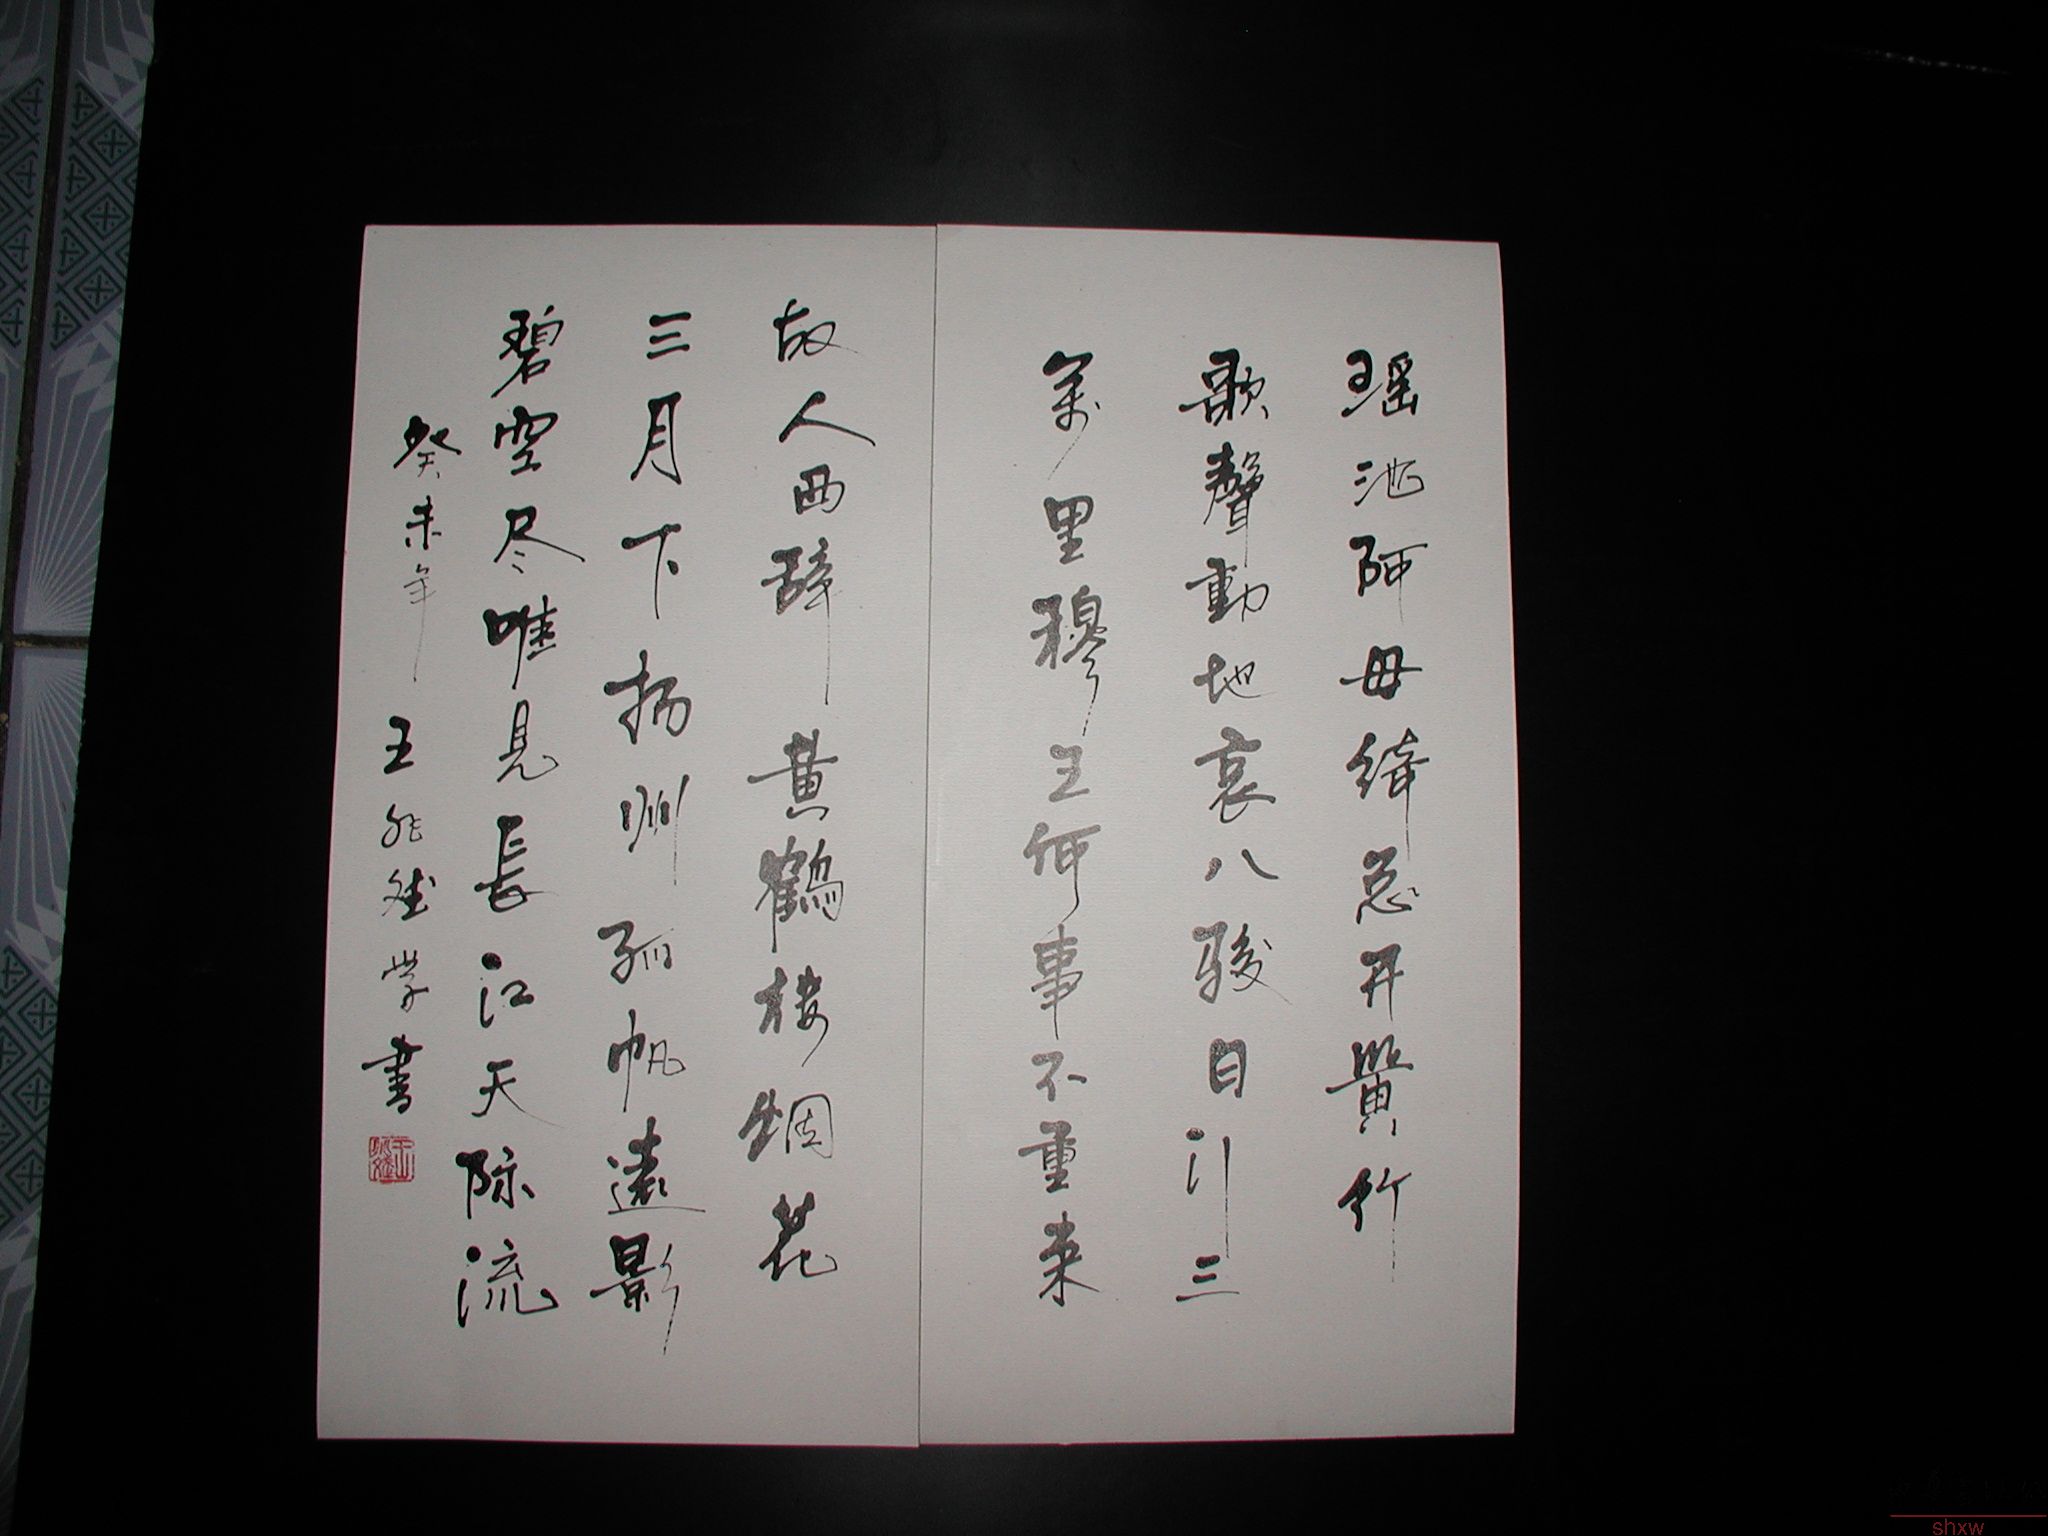 瑶池阿母绮窓开黄竹
歌聲動地哀八骏日行三
萬里穆王何事不重来
故人西辞黄鶴楼烟花
三月下扬州孤帆遠影
碧空尽唯見長江天际流
癸未年 王学書
shxw